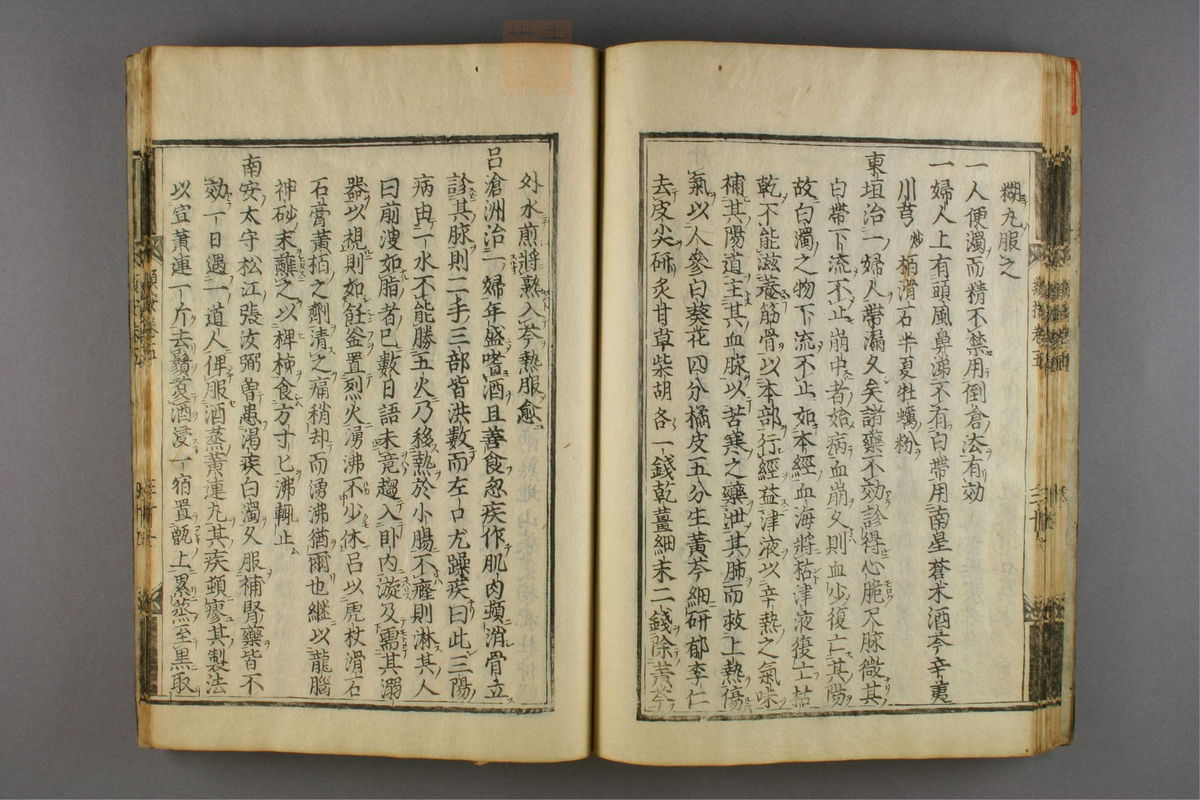 糊丸服之
一人便濁而精不禁用倒倉法有効
一婦人上有頭風鼻涕下有白帶用南星蒼朮酒芩辛夷
川芎炒栢滑石半夏牡蠣粉
東垣治一婦人帶漏久矣諸藥不効診得心脆尺脉微其
白帶下流不止崩中者始病血崩久則血少復亡其陽
故白濁之物下流不止如本經血海將枯津液復亡枯
乾不能滋養筋骨以本部行經益津液以辛熱之氣味
補其陽道主其血脉以苦寒之藥泄其肺而救上熱傷
氣以人參白葵花四分橘皮五分生黃芩細研郁李仁
去皮尖研炙甘草柴胡各一錢乾薑細末二錢除黃芩
外水煎將熟入芩熱服愈
呂滄洲治一婦年盛嗜酒且善食忽疾作肌肉頰消骨立
診其脉則二手三部皆洪數而左口尤躁疾曰此三陽
病由一水不能勝五火乃移熱於小腸不癃則淋其人
曰前溲如脂者已數日語未竟趨入卧内漩及需其溺
器以視則如飪釜置烈火湧沸不少休呂以虎杖滑石
石膏黃栢之劑清之痛稍却而湧沸猶爾也繼以龍腦
神砂末蘸之以椑柿食方寸匕沸輒止
南安太守松江張汝弼曽患渴疾白濁久服補腎藥皆不
効一日遇一道人俾服酒蒸黃連丸其疾頓瘳其製法
以宣黃連一斤去鬚煮酒浸一宿置甑上累蒸至黒取